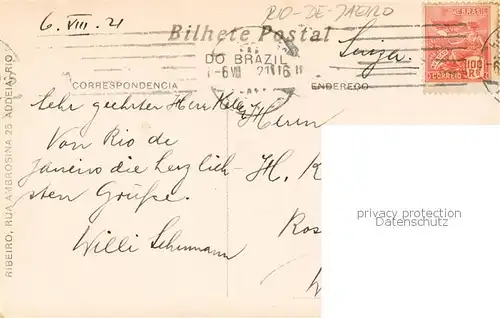 6. VIII. 21
RIO-DE-JAEIRO
Bilhete Postal
DO BRAZIL
6 VIII 21 16
Suiza.
BRASIL
100 RS
CORREIO
CORRESPONDENCIA
ENDEREÇO
Sehr geehrter Herr
Von Rio de
Janeiro die herzlich-
sten Grüsse.
Willi Schumann
Herrn
H. K
Ros
RIBEIRO, RUA AMBROSINA 25 ADDEIA, RIO
privacy protection
Datenschutz